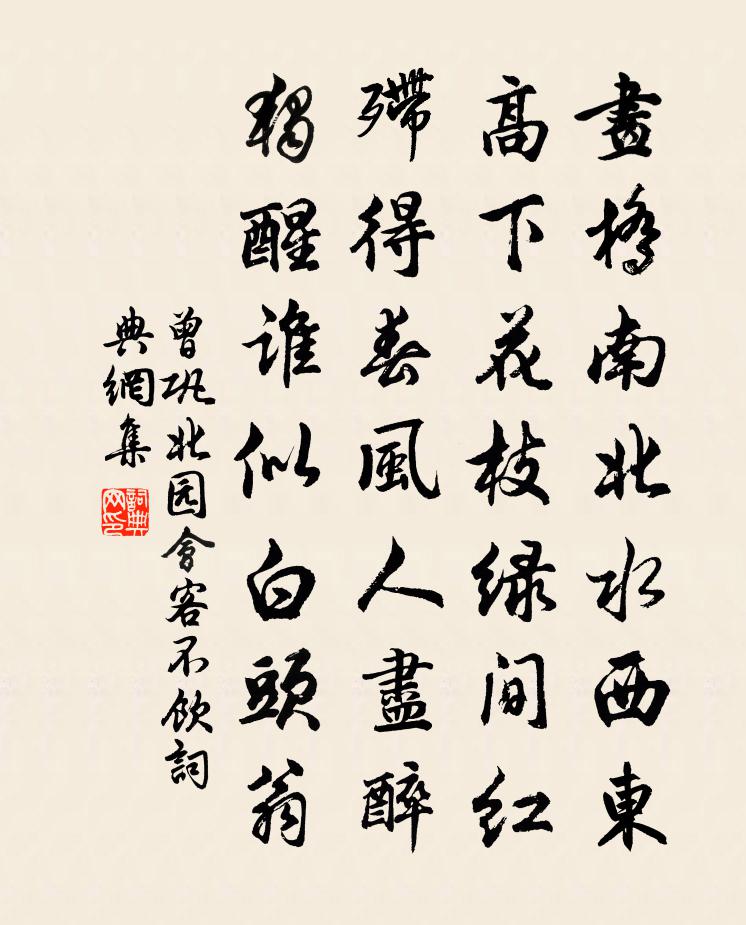 畫橋南北水西東
高下花枝绿間红
殢得春風人盡醉
獨醒誰似白頭翁
曾巩北园會客不飲詞
典網集
詞典網印